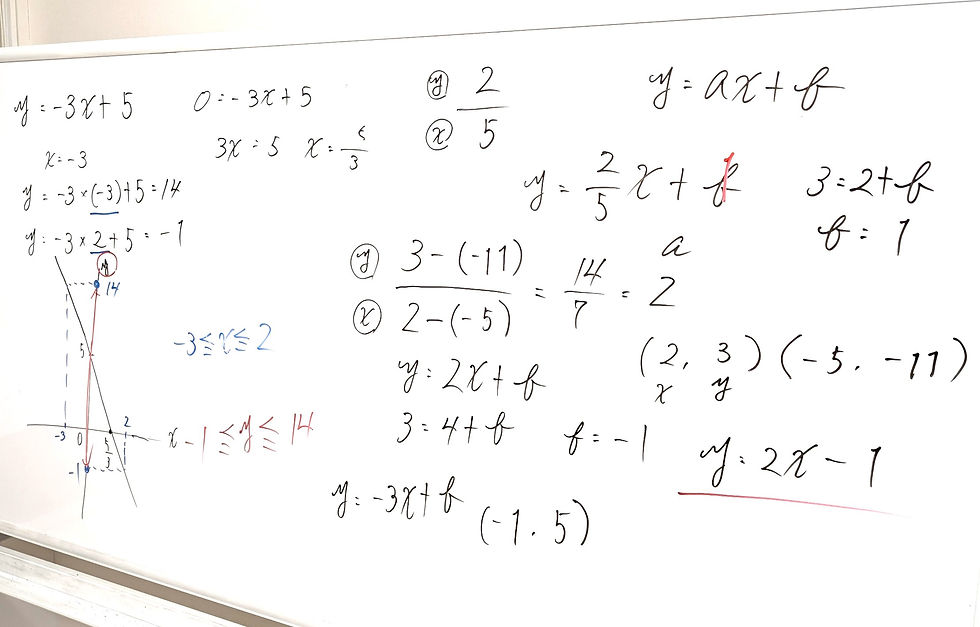 y = -3x + 5
0 = -3x + 5
x = -3
3x = 5 x = 5/3
y = -3 × (-3) + 5 = 14
y = -3 × 2 + 5 = -1
y
14
5
-3 0 5/3 2 x
-1
-3 ≦ x ≦ 2
-1 ≦ y ≦ 14
ⓨ 2
ⓧ 5
y = ax + b
y = 2/5 x + b
3 = 2 + b
b = 1
ⓨ 3 - (-11)
ⓧ 2 - (-5)
= 14/7 = 2
a
(2, 3) (-5, -11)
x y
y = 2x + b
3 = 4 + b b = -1
y = 2x - 1
y = -3x + b (-1, 5)